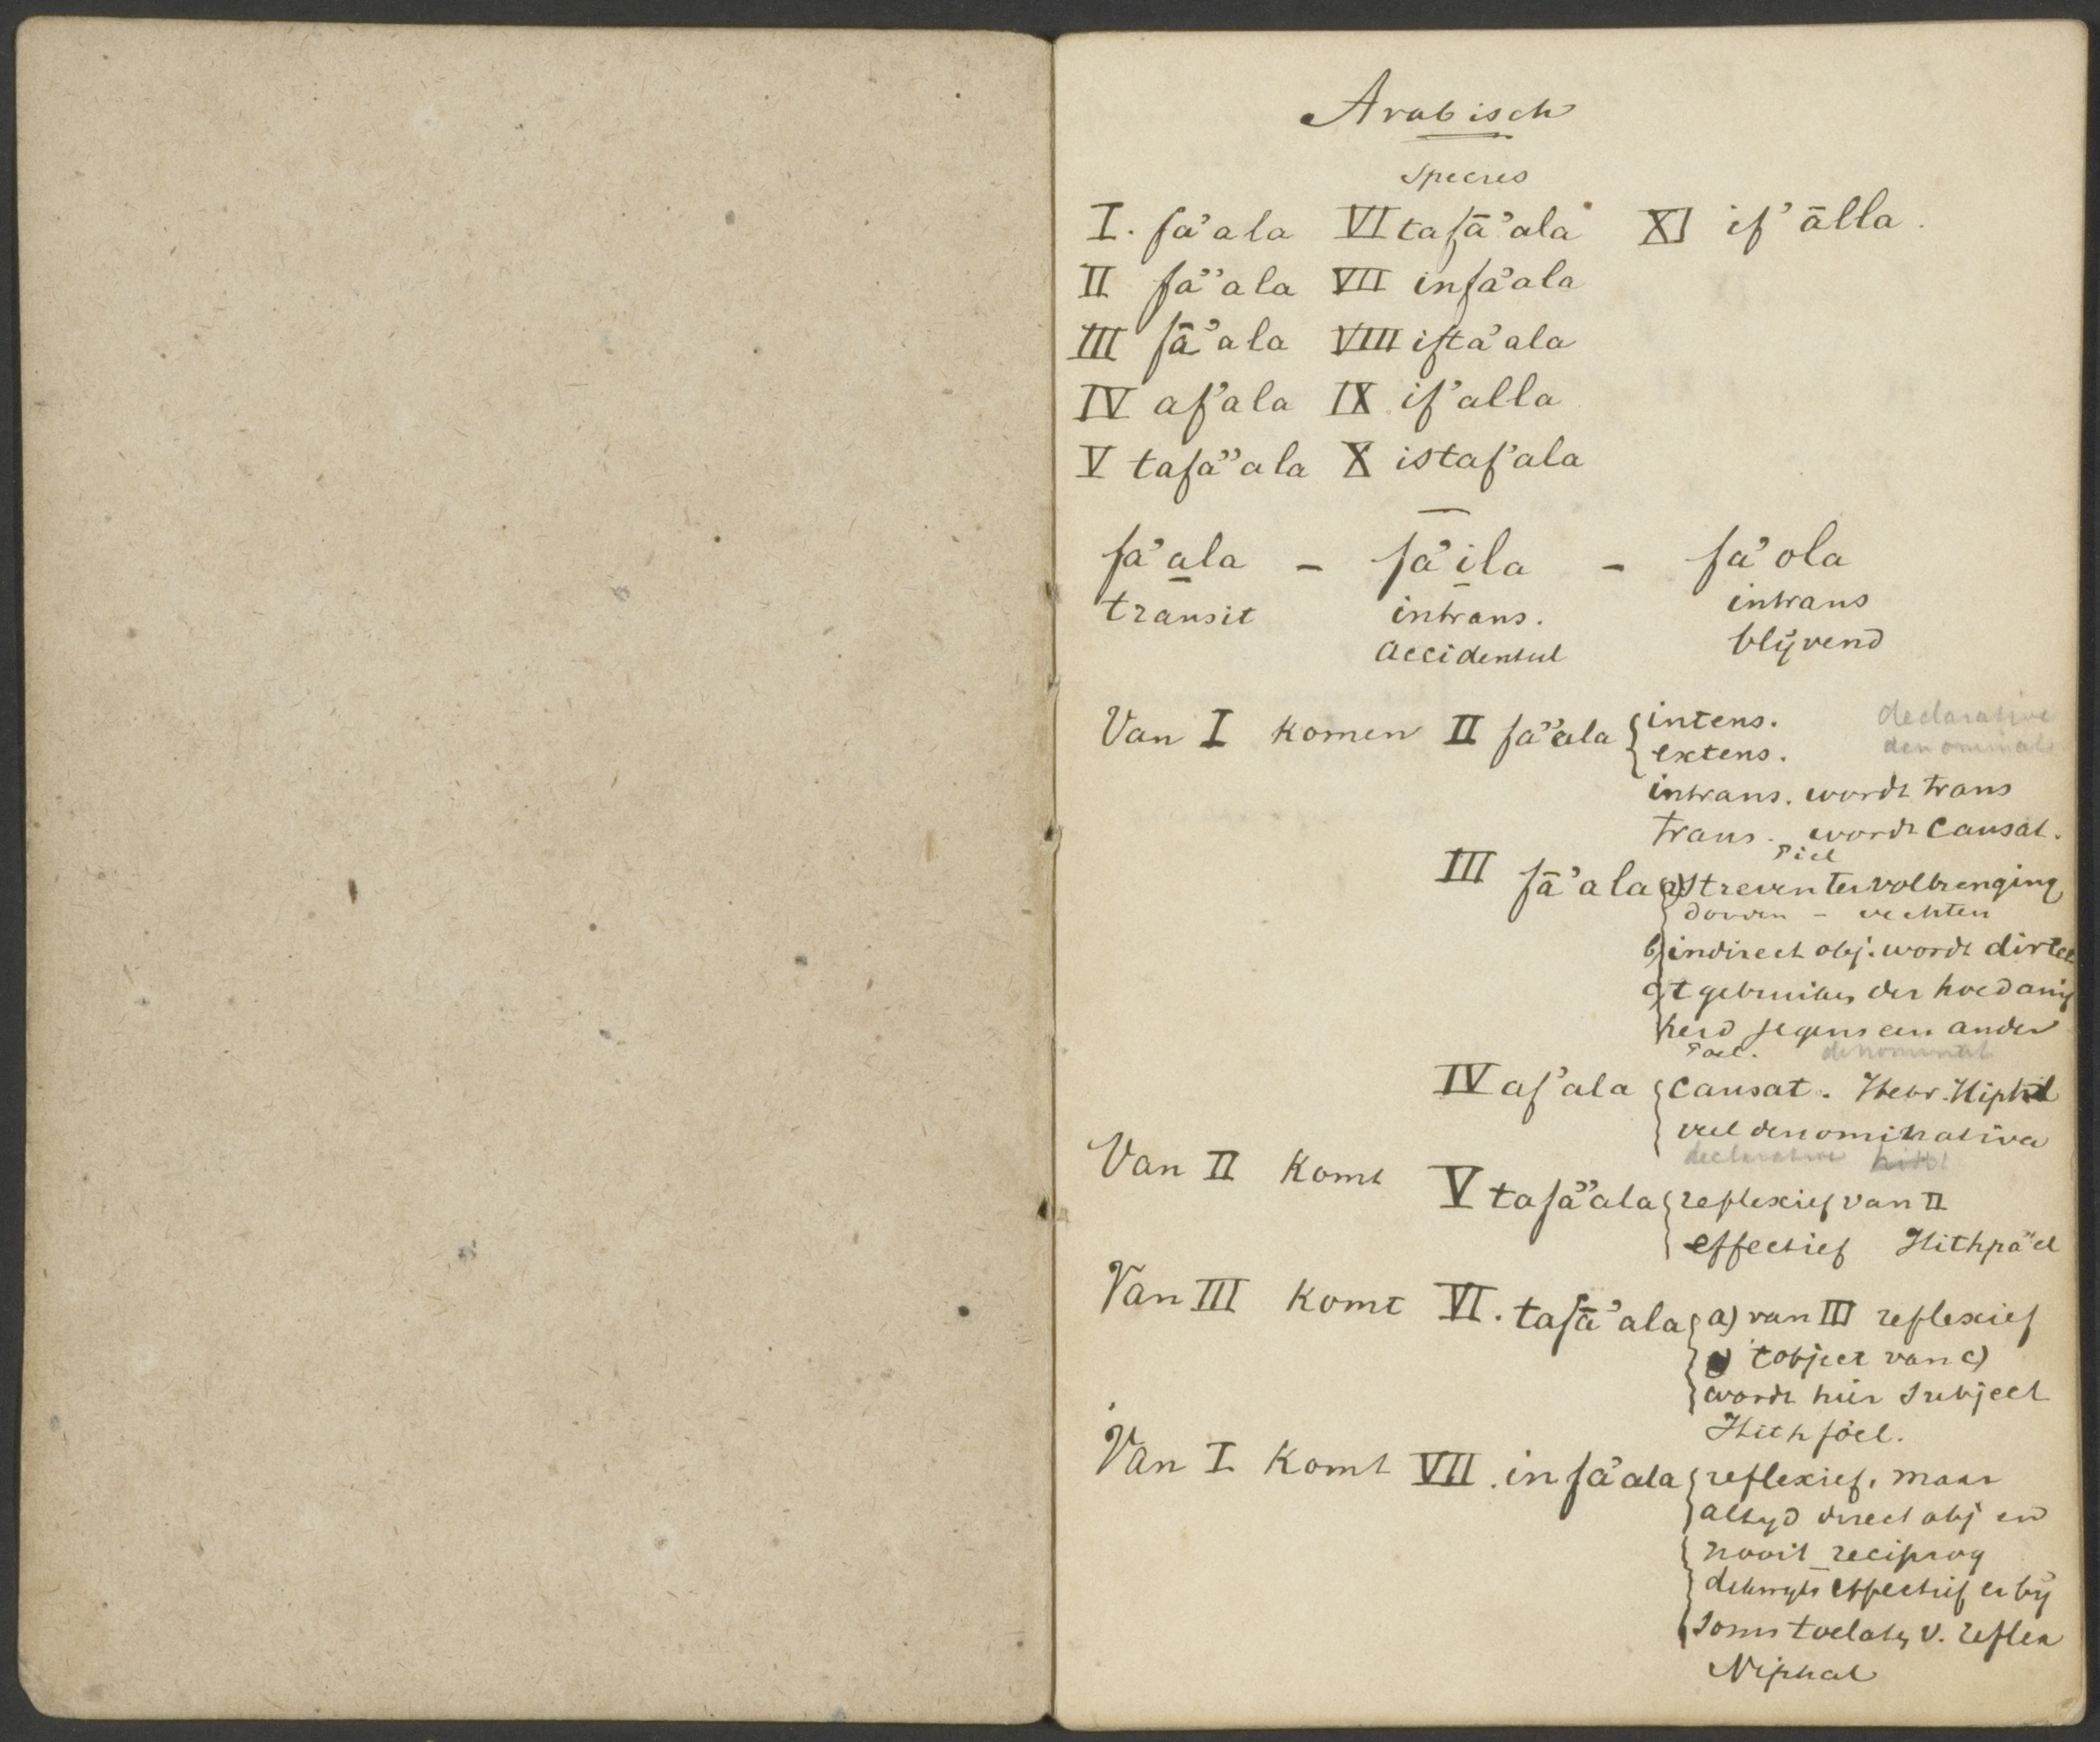 Arabisch
species
I. fa'ala VI tafā'ala XI if'ālla.
II fa"ala VII infa'ala
III fā'ala VIII ifta'ala
IV af'ala IX if'alla
V tafa"ala X istaf'ala
fa'ala - fa'ila - fa'ola
transit intrans. intrans
accidentul blijvend
Van I komen II fa"ala intens. declarative
extens. denominat
intrans. wordt trans
trans. wordt causat.
Piel
III fā'ala a) streven ter volbrenging
vechten
b) indirect obj. wordt direct
c) t gebruiken der hoedanig
heid jegens een ander
Poel. denominat
IV af'ala causat. Hebr. Hiphil
veel denominativa
declarative
Van II komt V tafa"ala reflexief van II
effectief Hithpa"el
Van III komt VI. tafā'ala a) van III reflexief
't object van c)
wordt hier subject
Hithpoel.
Van I komt VII. infa'ala reflexief, maar
altyd direct obj en
nooit reciproq
dikwyls effectief er bij
soms toelaten v. reflex
Niphal